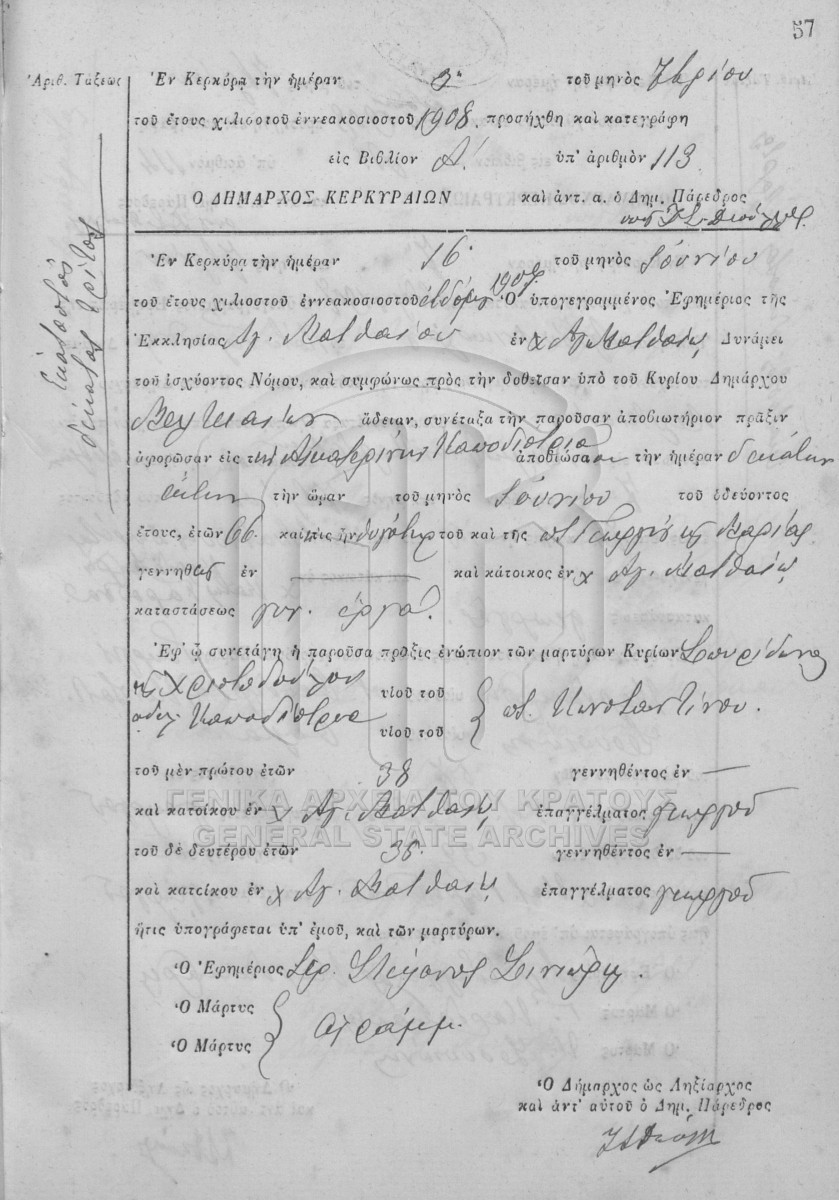 57
Ἀριθ. Τάξεως
Ἑκατοστὸς
δέκατος τρίτος
Ἐν Κερκύρᾳ τὴν ἡμέραν 2α τοῦ μηνὸς
τοῦ ἔτους χιλιοστοῦ ἐννεακοσιοστοῦ 1908. προσήχθη καὶ κατεγράφη
εἰς Βιβλίον Α΄. ὑπ' ἀριθμὸν 113
Ο ΔΗΜΑΡΧΟΣ ΚΕΡΚΥΡΑΙΩΝ καὶ ἀντ. α. ὁ Δημ. Πάρεδρος
Ἐν Κερκύρᾳ τὴν ἡμέραν 16 τοῦ μηνὸς Ἰουνίου
τοῦ ἔτους χιλιοστοῦ ἐννεακοσιοστοῦ ἑβδόμου 1907 Ὁ ὑπογεγραμμένος Ἐφημέριος τῆς
Ἐκκλησίας Ἁγ. Ματθαίου ἐν χ Ἁγ. Ματθαίῳ Δυνάμει
τοῦ ἰσχύοντος Νόμου, καὶ συμφώνως πρὸς τὴν δοθεῖσαν ὑπὸ τοῦ Κυρίου Δημάρχου
ἄδειαν, συνέταξα τὴν παροῦσαν ἀποβιωτήριον πρᾶξιν
ἀφορῶσαν εἰς τὴν Αἰκατερίνην Καποδίστρια ἀποβιώσασαν τὴν ἡμέραν δεκάτην
ἕκτην τὴν ὥραν τοῦ μηνὸς Ἰουνίου τοῦ ὁδεύοντος
ἔτους, ἐτῶν 66. καὶ ἥτις ἦν θυγάτηρ τοῦ καὶ τῆς ποτ. Γεωργίου κ Μαρίας
γεννηθεῖσα ἐν — καὶ κάτοικος ἐν χ Ἁγ. Ματθαίῳ
καταστάσεως γυν. ἐργα.
Ἐφ' ᾧ συνετάγη ἡ παροῦσα πρᾶξις ἐνώπιον τῶν μαρτύρων Κυρίων Σπυρίδωνος
κ Χριστοδούλου υἱοῦ τοῦ
αδελ. Καποδίστρια υἱοῦ τοῦ ποτ. Κωνσταντίνου.
τοῦ μὲν πρώτου ἐτῶν 38 γεννηθέντος ἐν —
καὶ κατοίκου ἐν χ Ἁγ. Ματθαίῳ ἐπαγγέλματος γεωργοῦ
ΓΕΝΙΚΑ ΑΡΧΕΙΑ ΤΟΥ ΚΡΑΤΟΥΣ
GENERAL STATE ARCHIVES
τοῦ δὲ δευτέρου ἐτῶν 35. γεννηθέντος ἐν —
καὶ κατοίκου ἐν χ Ἁγ. Ματθαίῳ ἐπαγγέλματος γεωργοῦ
ἥτις ὑπογράφεται ὑπ' ἐμοῦ, καὶ τῶν μαρτύρων.
Ὁ Ἐφημέριος Στέφανος
Ὁ Μάρτυς
Ὁ Μάρτυς ἀγράμμ.
Ὁ Δήμαρχος ὡς Ληξίαρχος
καὶ ἀντ' αὐτοῦ ὁ Δημ. Πάρεδρος